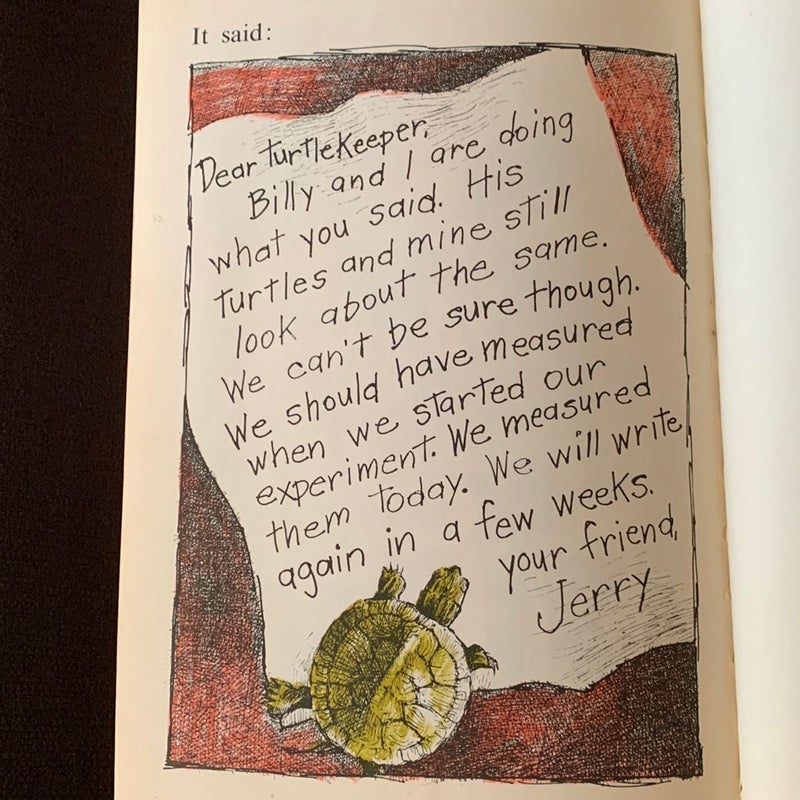 It said:
Dear TurtleKeeper,
Billy and I are doing
what you said. His
turtles and mine still
look about the same.
We can't be sure though.
We should have measured
when we started our
experiment. We measured
them today. We will write
again in a few weeks.
your friend,
Jerry